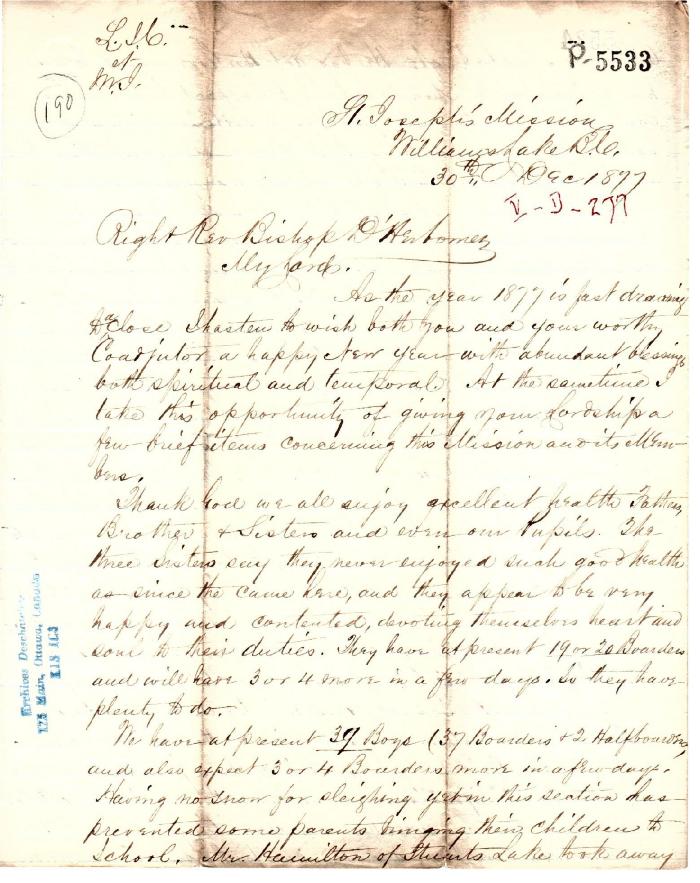 L.J.C.
et
M.I.
P-5533
190
St. Joseph's Mission
Williams Lake B.C.
30th Dec 1877
V-D-277
Right Rev Bishop D'Herbomez
My Lord.
As the year 1877 is fast drawing
to a Close I hasten to wish both you and your worthy
Coadjutor a happy New Year with abundant blessings
both spiritual and temporal. At the sametime I
take this opportunity of giving your Lordship a
few brief items concerning this Mission and its Mem-
bers.
Thank God we all enjoy excellent health Fathers,
Brother & Sisters and even our Pupils. The
three sisters say they never enjoyed such good health
as since the came here, and they appear to be very
happy and contented, devoting themselves heart and
soul to their duties. They have at present 19 or 20 Boarders
and will have 3 or 4 more in a few days. So they have
plenty to do.
We have at present 39 Boys (37 Boarders & 2 Halfboarders,
and also expect 3 or 4 Boarders more in a few days.
Having no snow for sleighing yet in this section has
prevented some parents bringing their children to
School. Mr. Hamilton of Stuarts Lake took away
Archives Deschâtelets
175 Main, Ottawa, Canada
K1S 1C3